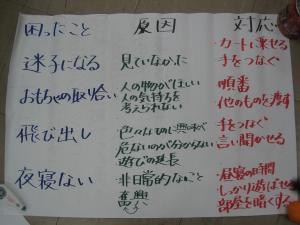 困ったこと 原因 対応
迷子になる 見ていなかた ・カートに乗せる
・手をつなぐ
おもちゃの取り合い 人の物がほしい ・順番
人の気持ちを ・他のものを渡す
考えられない
飛び出し 色々なものに興味 ・手をつなぐ
危ないのが分からない ・言い聞かせる
遊びの延長
夜寝ない ・非日常的なこと ・昼寝の時間
・興奮 ・しっかり遊ばせる
・部屋を暗くする